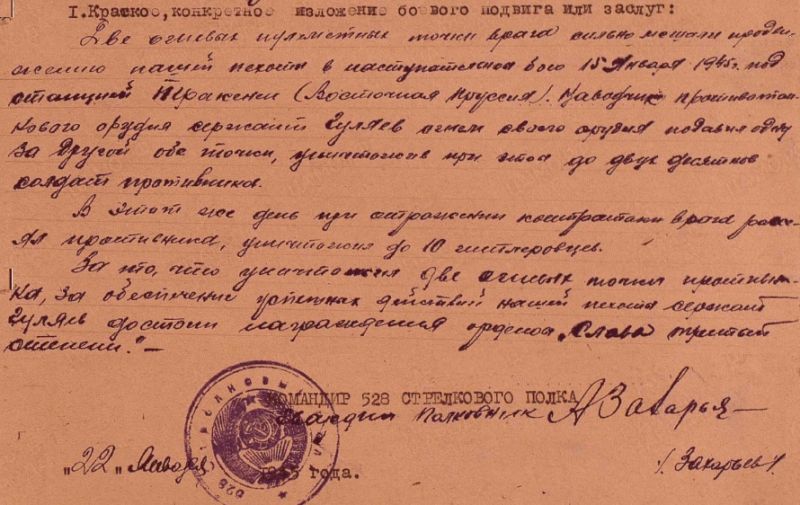 I.Краткое,конкретное изложение боевого подвига или заслуг:
Две огневых пулеметных точки врага сильно мешали продви-
жению нашей пехоты в наступательном бою 15 января 1945г. под
станцией (Восточная Пруссия). Наводчик противотан-
кового орудия сержант Гуляев огнем своего орудия подавил одну
за другой обе точки, уничтожив при этом до двух десятков
солдат противника.
В этот же день при отражении контратаки врага рассе-
ял противника, уничтожив до 10 гитлеровцев.
За то, что уничтожил две огневых точки противни-
ка, за обеспечение успешных действий нашей пехоты сержант
Гуляев достоин награждения орденом "Слава третьей
степени."—
КОМАНДИР 528 СТРЕЛКОВОГО ПОЛКА
Гвардии Полковник АЗахарье
"22" Января 1945 года.
/Захарьев/